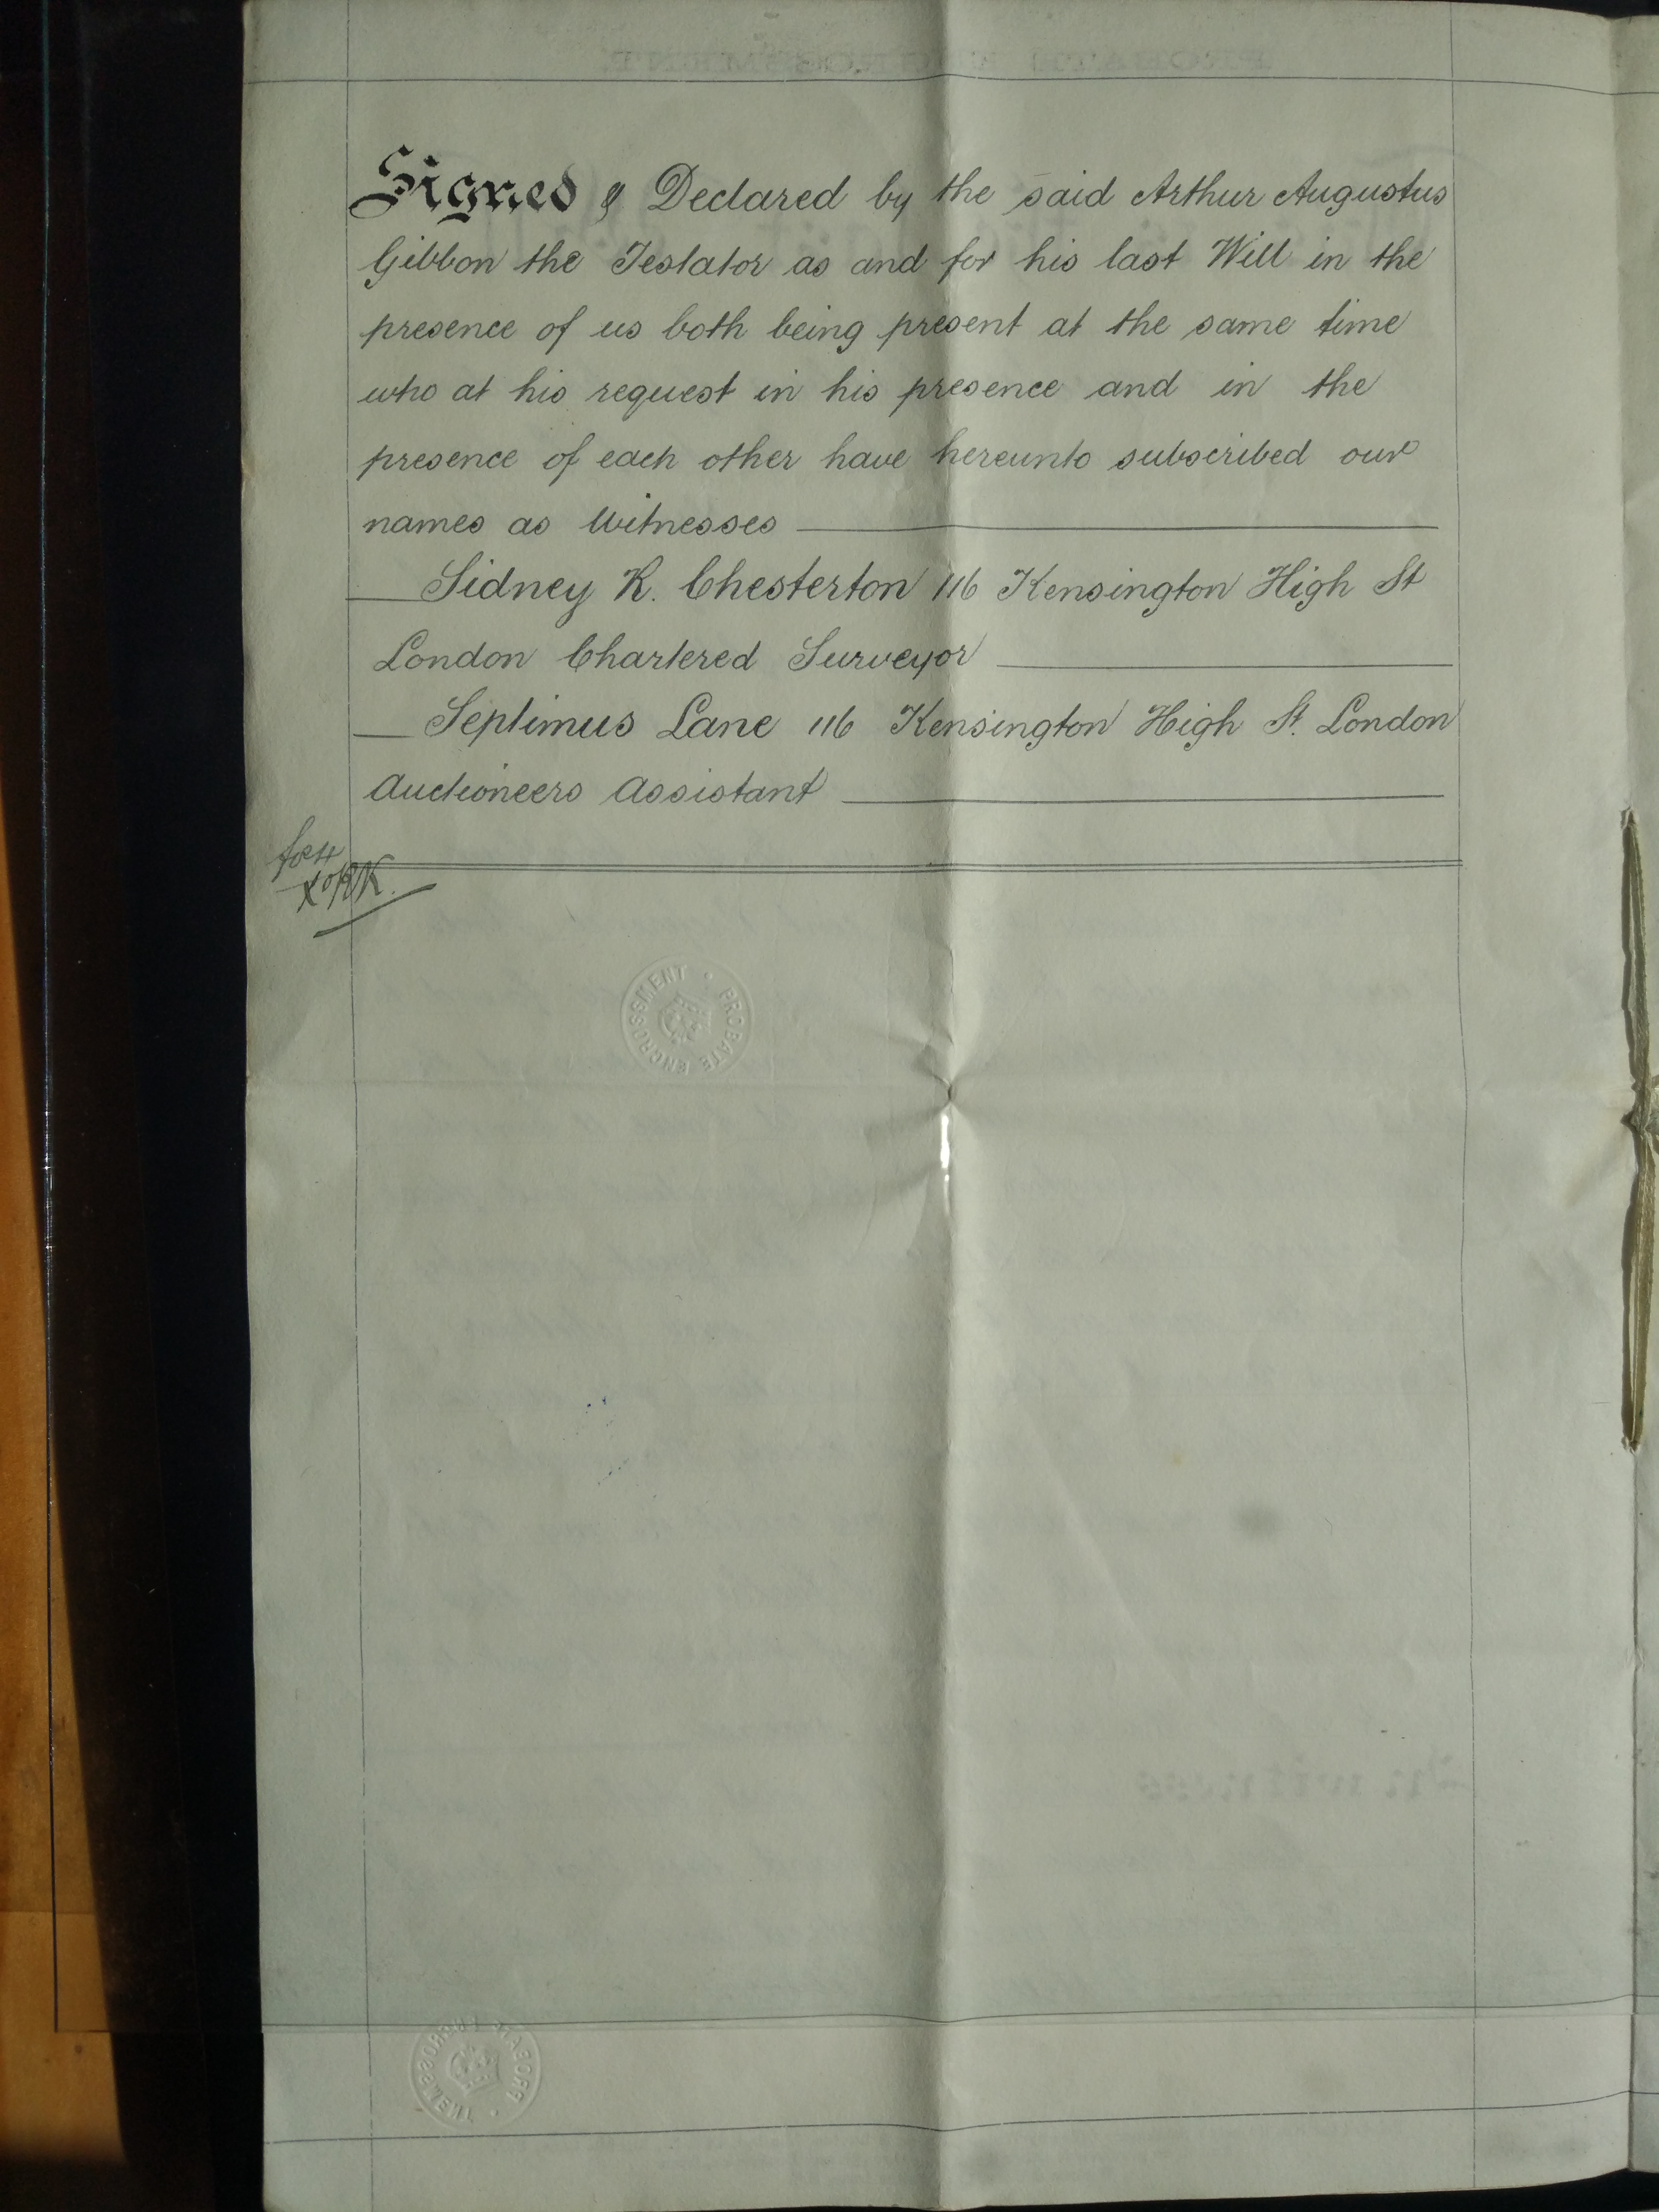 Signed & Declared by the said Arthur Augustus
Gibbon the Testator as and for his last Will in the
presence of us both being present at the same time
who at his request in his presence and in the
presence of each other have hereunto subscribed our
names as Witnesses
Sidney K. Chesterton 116 Kensington High St
London Chartered Surveyor
Septimus Lane 116 Kensington High St. London
Auctioneers Assistant
PROBATE ENGROSSMENT
PROBATE ENGROSSMENT